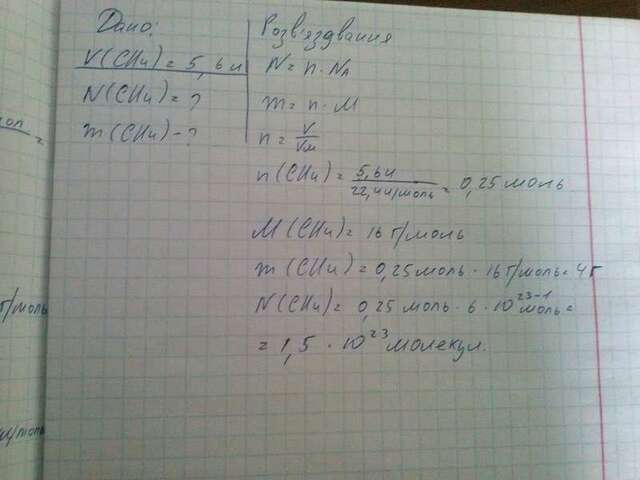 Дано:
V(CH₄) = 5,6 л
N(CH₄) = ?
m(CH₄) - ?
Розв'яздвання
N = n · Nₐ
m = n · M
n = V/Vм
n(CH₄) = 5,6л/22,4л/моль = 0,25 моль
M(CH₄) = 16 г/моль
m(CH₄) = 0,25 моль · 16 г/моль = 4 г
N(CH₄) = 0,25 моль · 6 · 10²³ моль⁻¹ =
= 1,5 · 10²³ молекул.
г/моль
л/моль